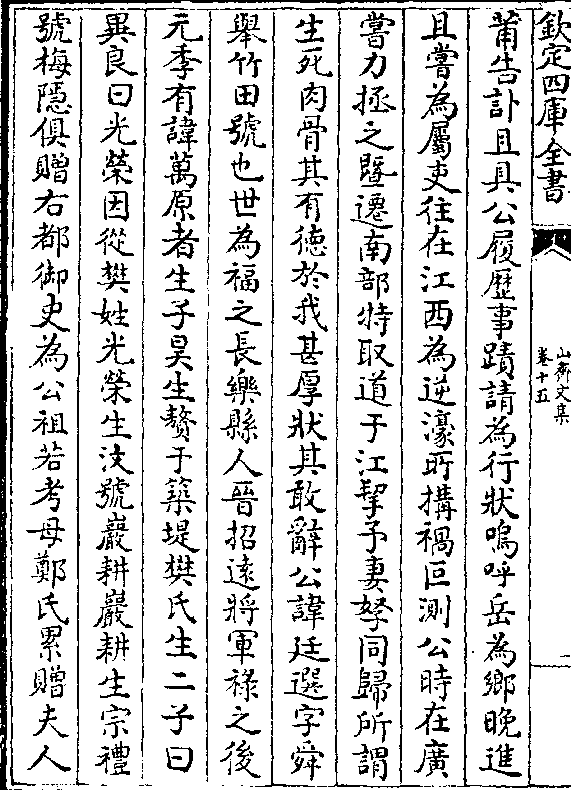 欽定四庫全書
山齋文集
卷十五
二
莆告訃且具公履歷事蹟請為行狀嗚呼岳為鄉晚進
且嘗為屬吏往在江西為逆濠所搆禍叵測公時在廣
嘗力拯之暨遷南部特取道于江挈予妻孥同歸所謂
生死肉骨其有德於我甚厚狀其敢辭公諱廷選字舜
舉竹田號也世為福之長樂縣人晉招遠將軍祿之後
元季有諱萬原者生子昊生贅于築堤樊氏生二子曰
異良曰光榮因從樊姓光榮生汶號巖耕巖耕生宗禮
號梅隱俱贈右都御史為公祖若考母鄭氏累贈夫人